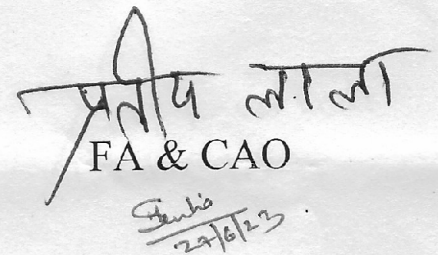 प्रतीप लाला
FA & CAO
27/6/23